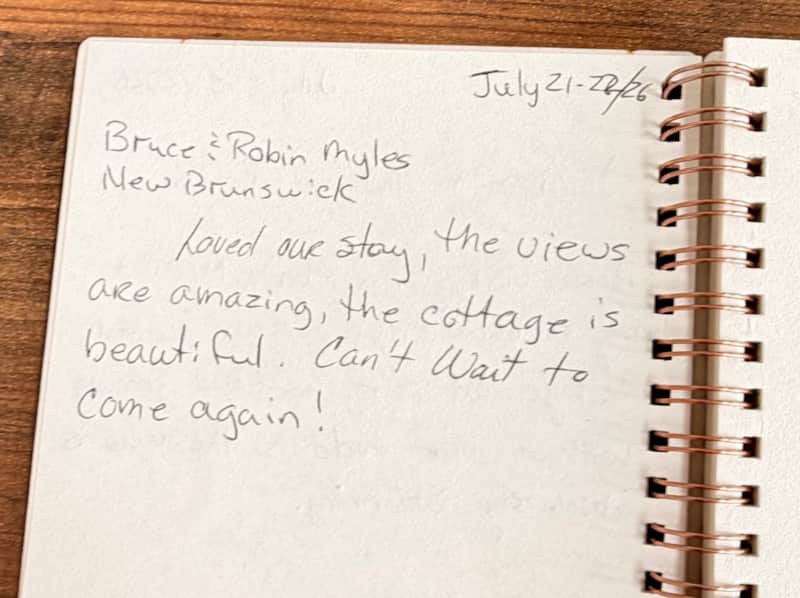 July 21-22/26
Bruce & Robin Myles
New Brunswick
Loved our stay, the views
are amazing, the cottage is
beautiful. Can't Wait to
Come again!